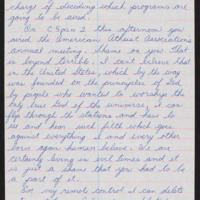 charge of deciding which programs are
going to be aired.
On C Span 2 this afternoon you
aired the American Atheist Associations
annual meeting. Shame on you. That
is beyond terrible. I can't believe that
in the United States, which by the way
was founded on the principles of God
by people who wanted to worship the
only true God of the universe, I can
flip through the stations and have to
see and hear such filth which goes
against everything I and every other
born again human believe. We are
certainly living in evil times and it
is just a shame that you had to be
a part of it.
On my remote control I can delete